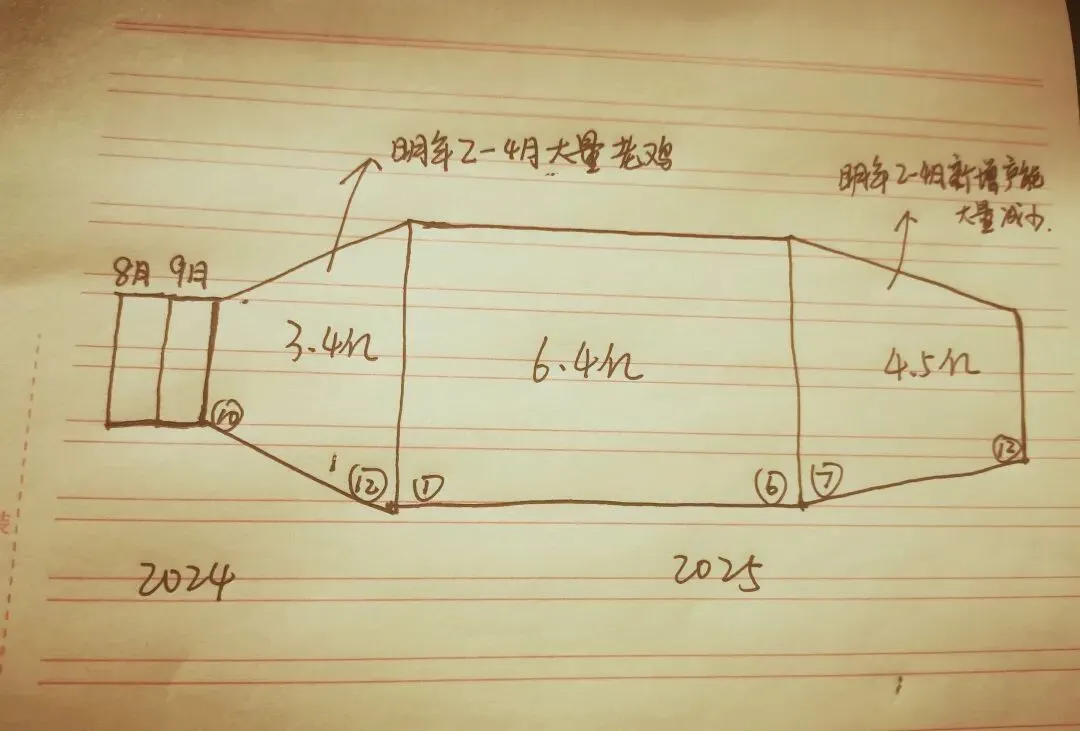 明年2-4月大量老鸡
明年2-4月新增产能
大量减少.
8月 9月
3.4亿
6.4亿
4.5亿
⑩
⑫ ① ⑥ ⑦ ⑫
2024 2025